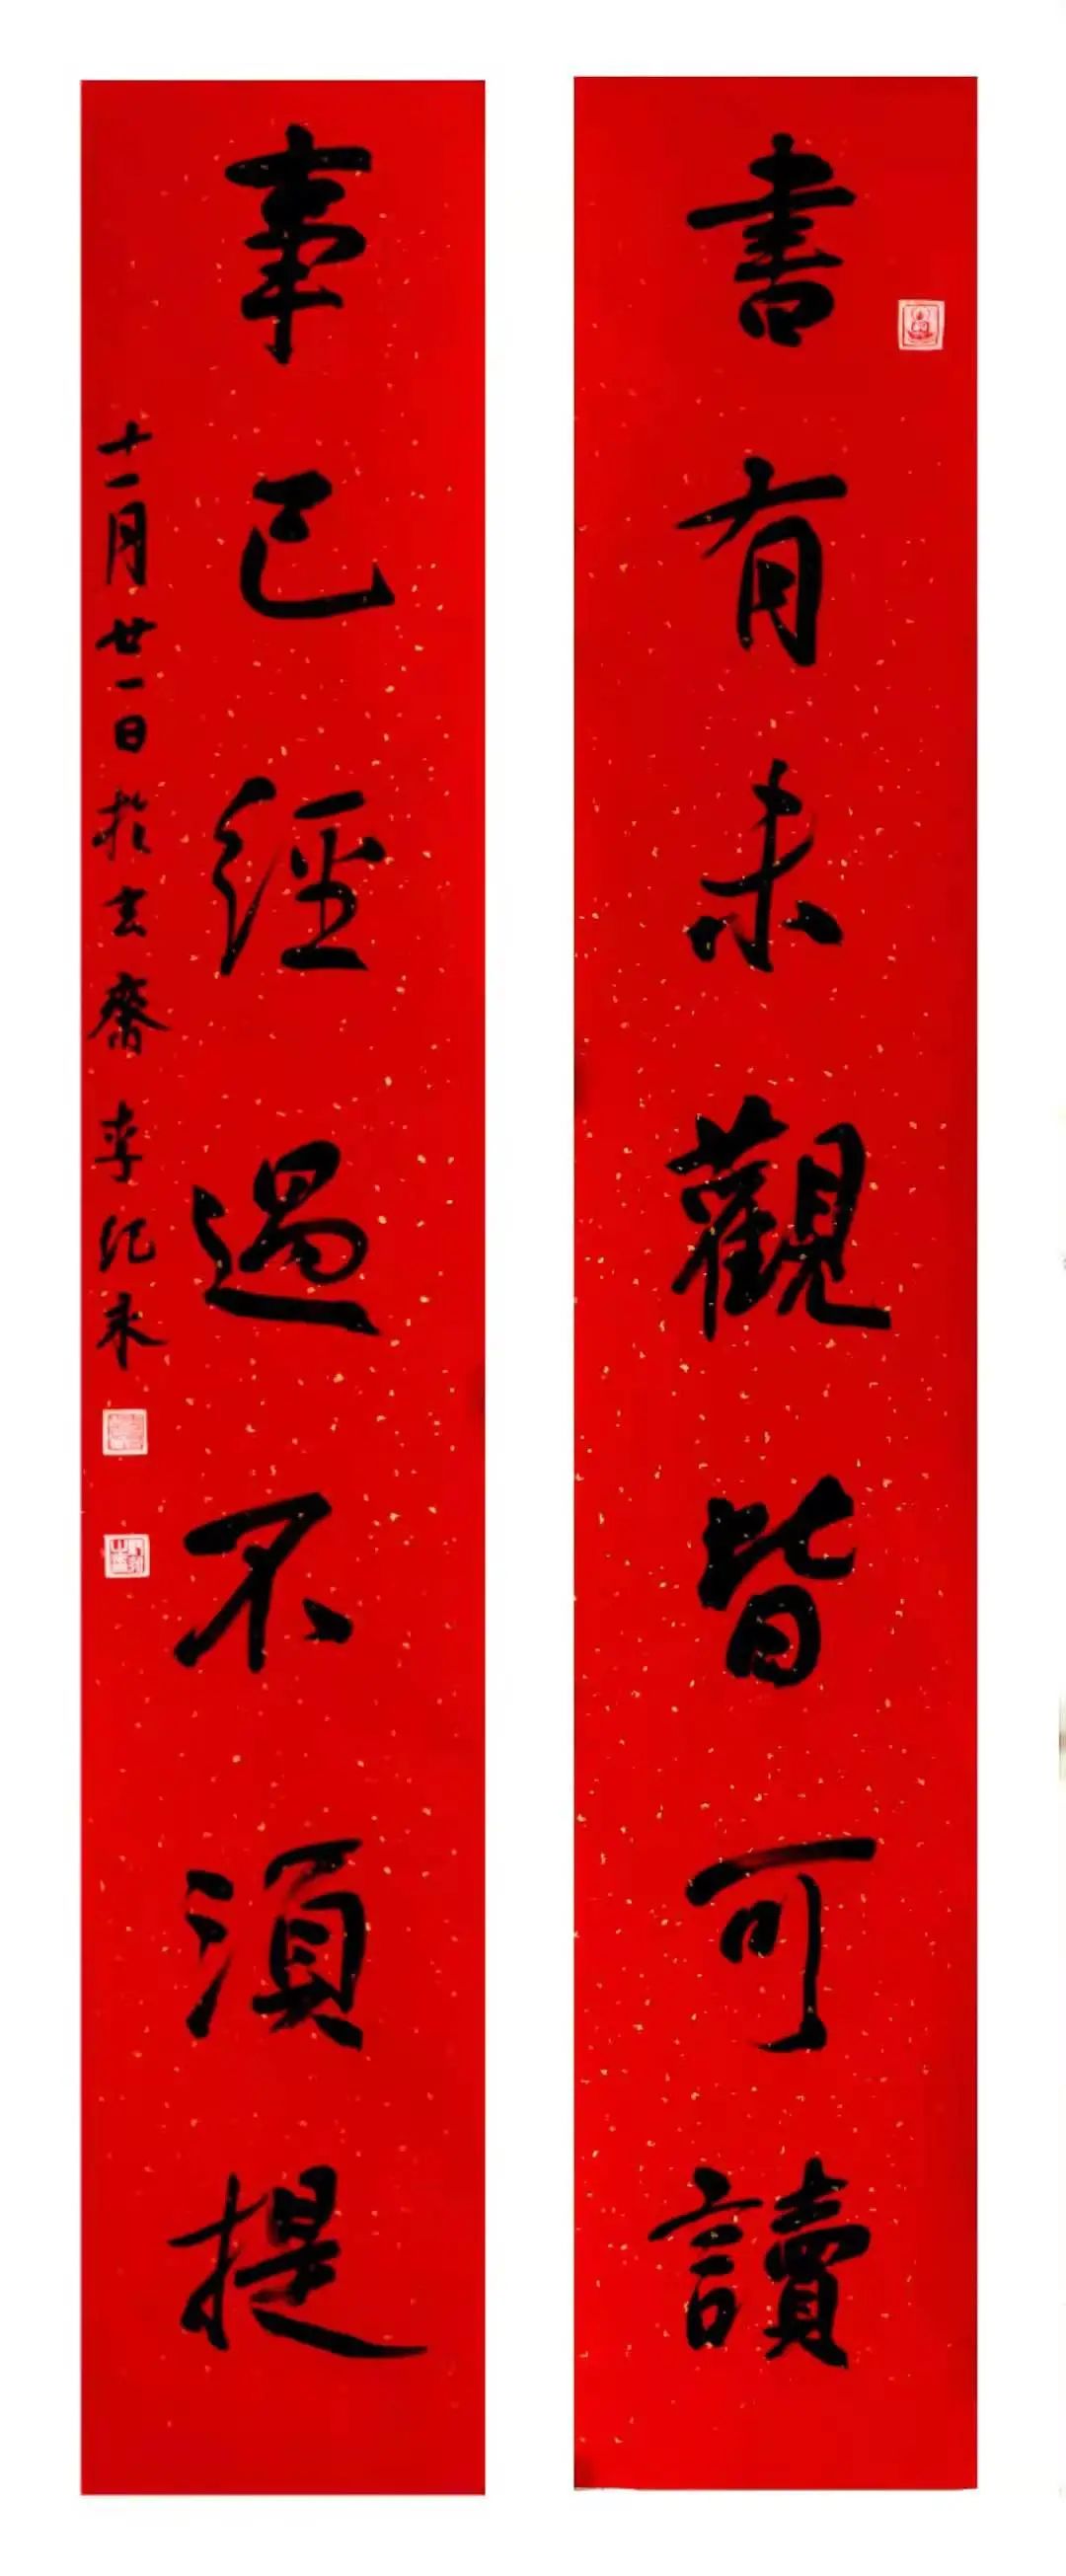 書有未觀皆可讀
事已經過不須提
十一月廿一日於玄齋 李紀未